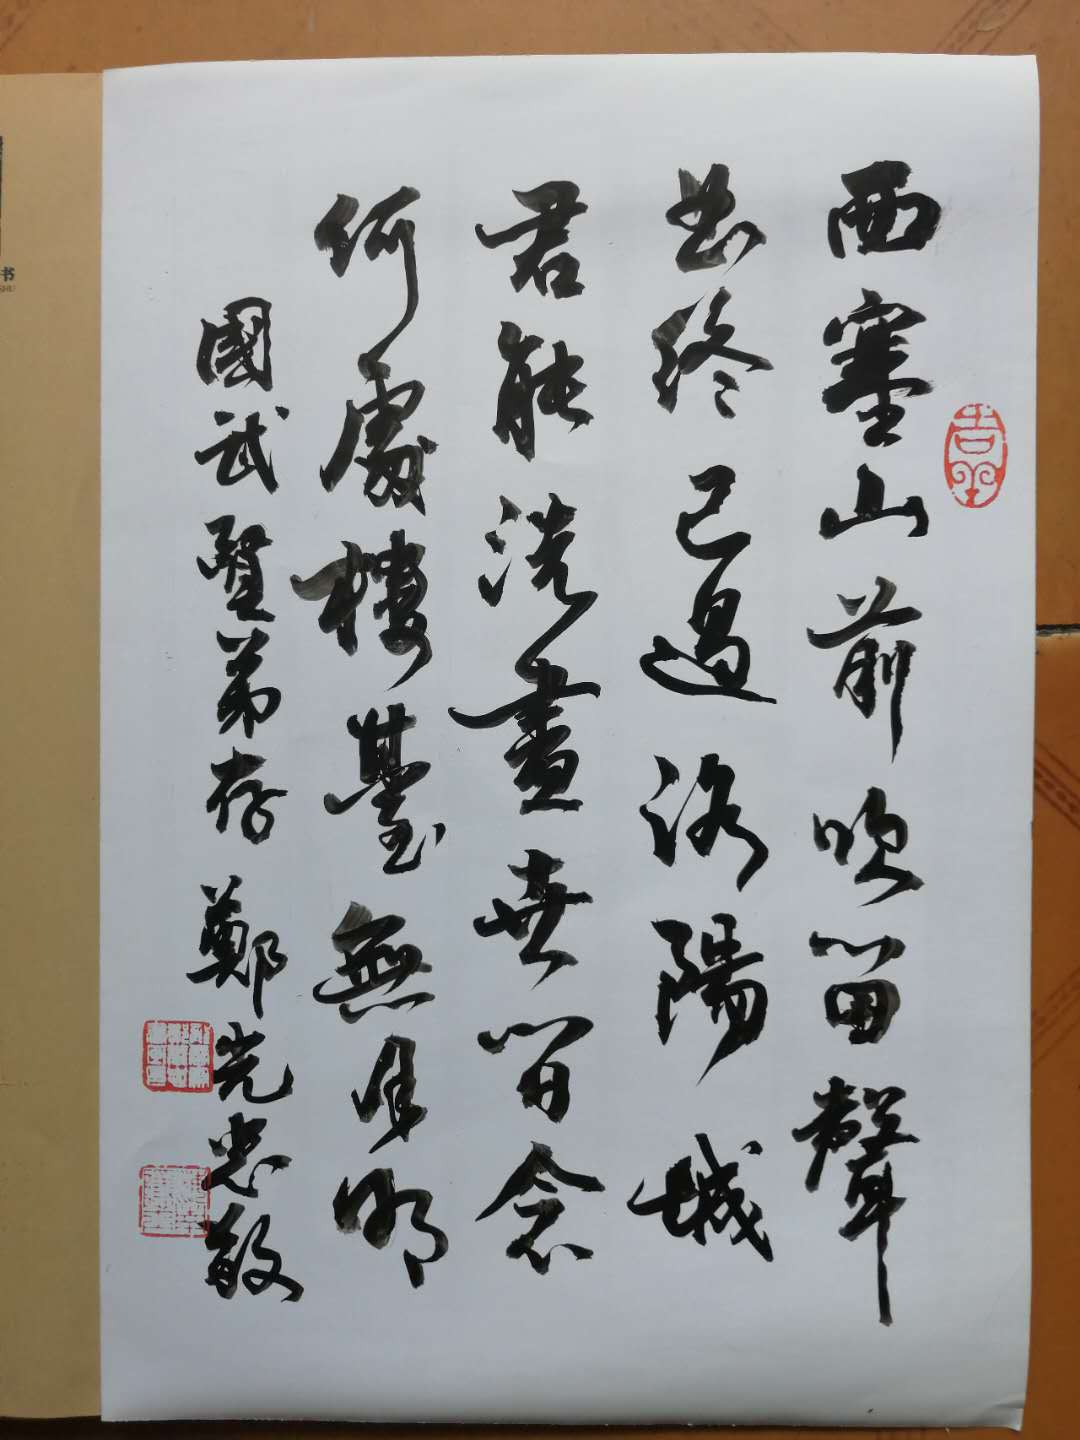 西塞山前吹笛聲
曲終已過洛陽城
君能洗盡世間念
何處樓臺無月明
國武賢弟存 鄭光忠敬
吉
书
SHU